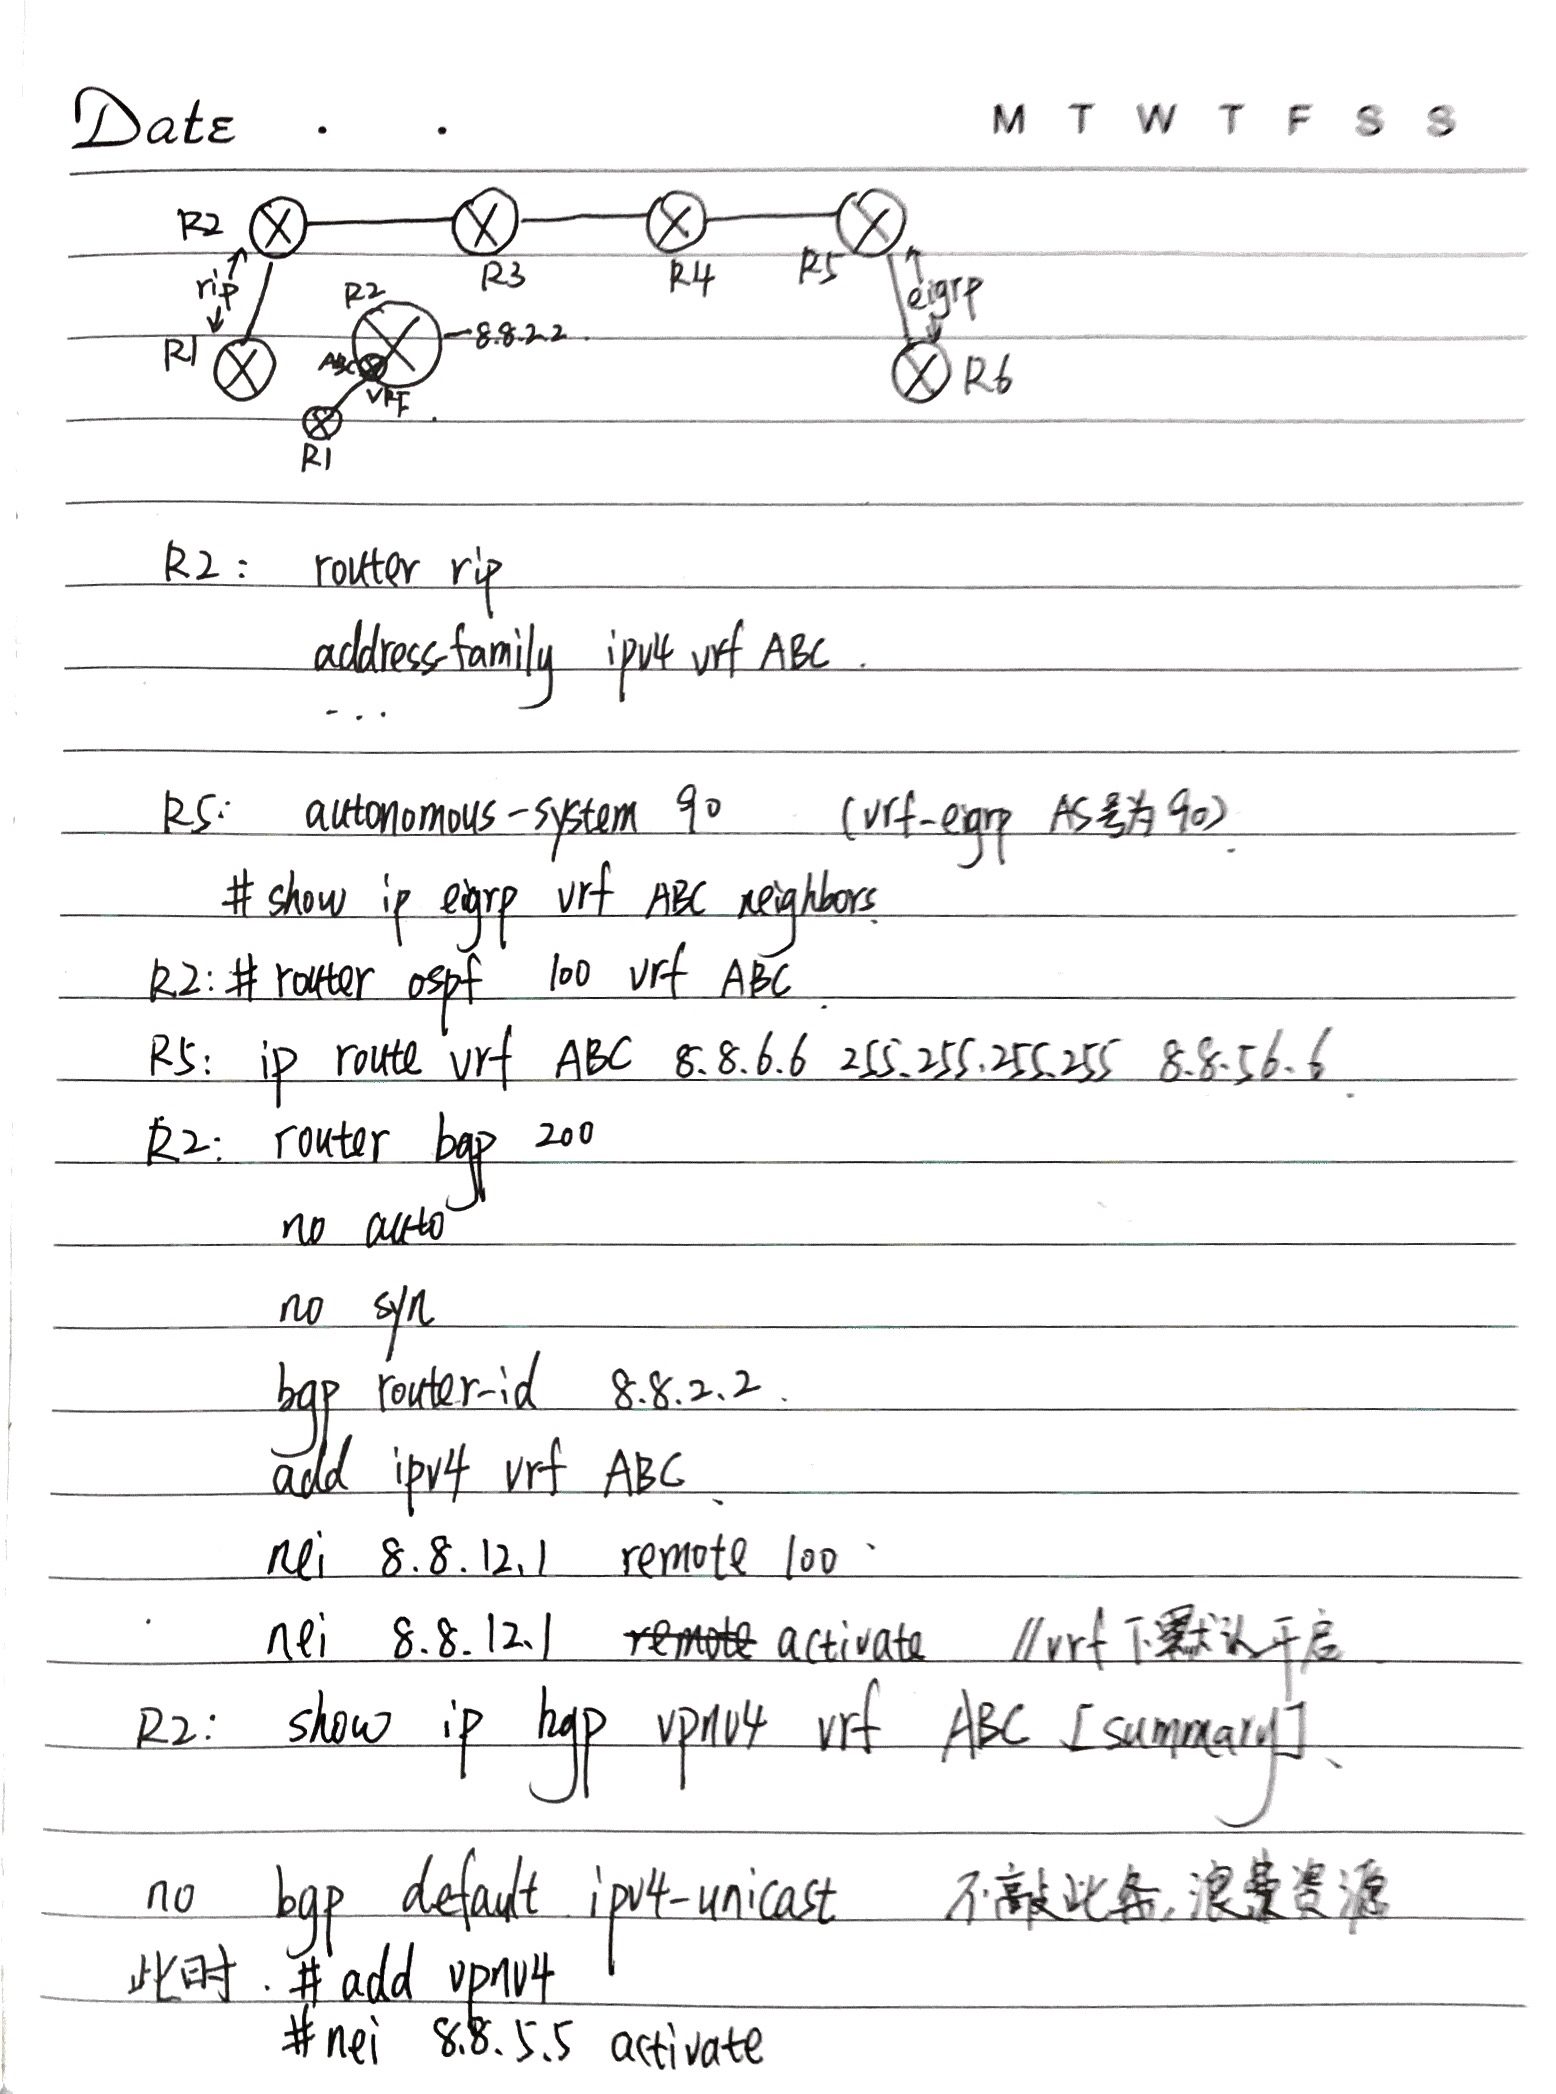 Date . .
M T W T F S S
R2
R3
R4
R5
rip
R2
eigrp
8.8.2.2
R1
ABC
R6
VRF
R1
R2: router rip
address-family ipv4 vrf ABC.
...
R5: autonomous-system 90 (vrf-eigrp AS号为90).
# show ip eigrp vrf ABC neighbors.
R2: # router ospf 100 vrf ABC.
R5: ip route vrf ABC 8.8.6.6 255.255.255.255 8.8.56.6.
R2: router bgp 200
no auto
no syn
bgp router-id 8.8.2.2.
add ipv4 vrf ABC.
nei 8.8.12.1 remote 100.
nei 8.8.12.1 remote activate //vrf下默认开启
R2: show ip bgp vpnv4 vrf ABC [summary].
no bgp default ipv4-unicast 不敲此条,浪费资源
此时. # add vpnv4
# nei 8.8.5.5 activate